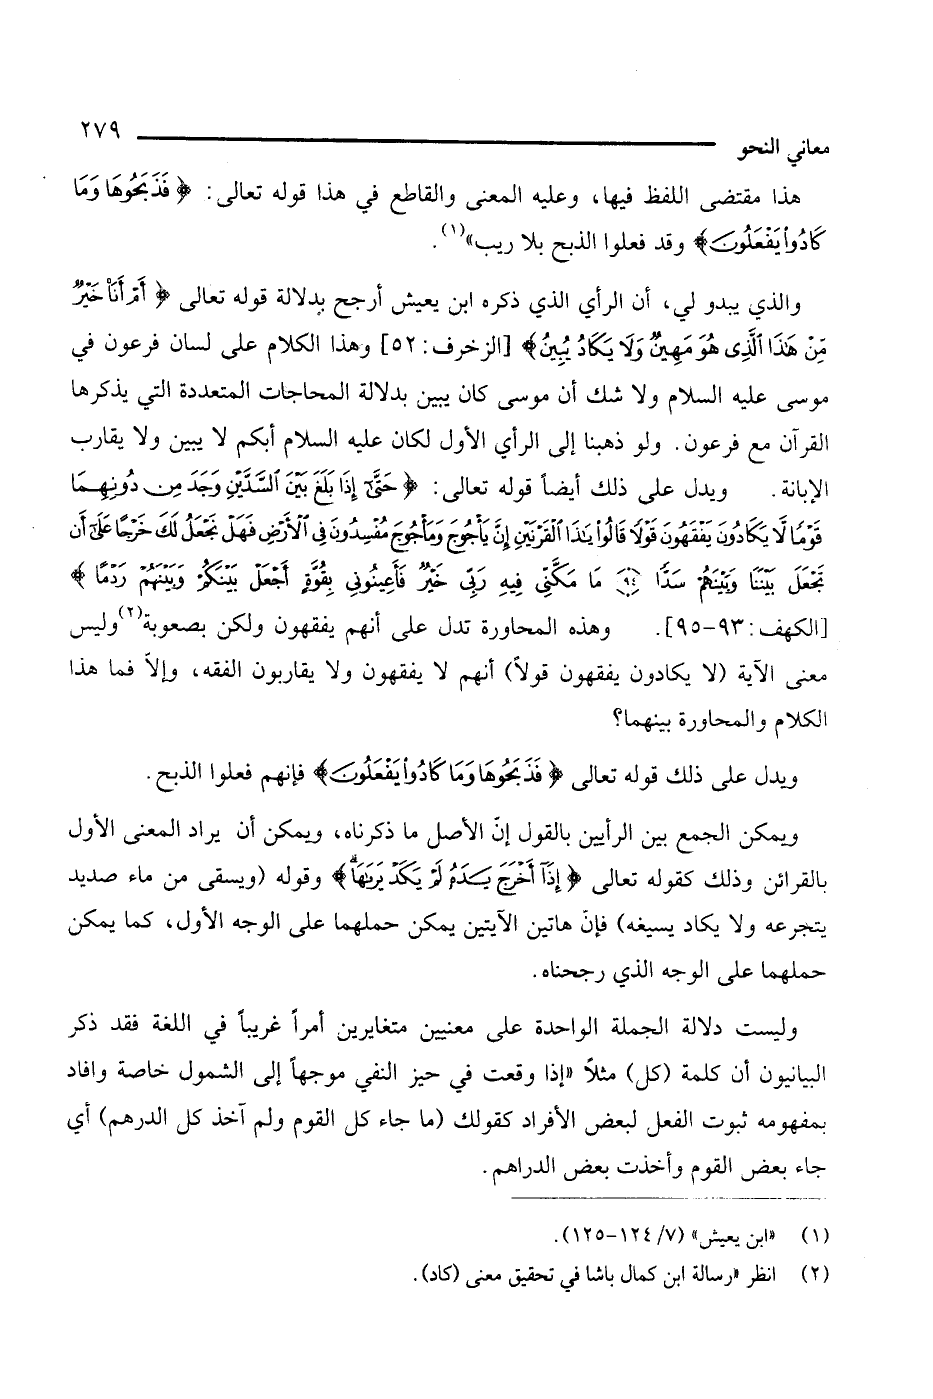 معاني النحو ٢٧٩
هذا مقتضى اللفظ فيها، وعليه المعنى والقاطع في هذا قوله تعالى: ﴿ فَذَبَحُوهَا وَمَا
كَادُوا۟ يَفْعَلُونَ﴾ وقد فعلوا الذبح بلا ريب»(١).
والذي يبدو لي، أن الرأي الذي ذكره ابن يعيش أرجح بدلالة قوله تعالى ﴿ أَمْ أَنَا۠ خَيْرٌ
مِّنْ هَٰذَا ٱلَّذِى هُوَ مَهِينٌ وَلَا يَكَادُ يُبِينُ﴾ [الزخرف: ٥٢] وهذا الكلام على لسان فرعون في
موسى عليه السلام ولا شك أن موسى كان يبين بدلالة المحاجات المتعددة التي يذكرها
القرآن مع فرعون. ولو ذهبنا إلى الرأي الأول لكان عليه السلام أبكم لا يبين ولا يقارب
الإبانة. ويدل على ذلك أيضاً قوله تعالى: ﴿ حَتَّىٰٓ إِذَا بَلَغَ بَيْنَ ٱلسَّدَّيْنِ وَجَدَ مِن دُونِهِمَا
قَوْمًا لَّا يَكَادُونَ يَفْقَهُونَ قَوْلًا قَالُوا۟ يَٰذَا ٱلْقَرْنَيْنِ إِنَّ يَأْجُوجَ وَمَأْجُوجَ مُفْسِدُونَ فِى ٱلْأَرْضِ فَهَلْ نَجْعَلُ لَكَ خَرْجًا عَلَىٰٓ أَن
تَجْعَلَ بَيْنَنَا وَبَيْنَهُمْ سَدًّا ۝٩٤ مَا مَكَّنِّى فِيهِ رَبِّى خَيْرٌ فَأَعِينُونِى بِقُوَّةٍ أَجْعَلْ بَيْنَكُمْ وَبَيْنَهُمْ رَدْمًا ﴾
[الكهف: ٩٣-٩٥]. وهذه المحاورة تدل على أنهم يفقهون ولكن بصعوبة(٢) وليس
معنى الآية (لا يكادون يفقهون قولاً) أنهم لا يفقهون ولا يقاربون الفقه، وإلاّ فما هذا
الكلام والمحاورة بينهما؟
ويدل على ذلك قوله تعالى ﴿ فَذَبَحُوهَا وَمَا كَادُوا۟ يَفْعَلُونَ﴾ فإنهم فعلوا الذبح.
ويمكن الجمع بين الرأيين بالقول إنّ الأصل ما ذكرناه، ويمكن أن يراد المعنى الأول
بالقرائن وذلك كقوله تعالى ﴿ إِذَآ أَخْرَجَ يَدَهُۥ لَمْ يَكَدْ يَرَىٰهَاۗ﴾ وقوله (ويسقى من ماء صديد
يتجرعه ولا يكاد يسيغه) فإنّ هاتين الآيتين يمكن حملهما على الوجه الأول، كما يمكن
حملهما على الوجه الذي رجحناه.
وليست دلالة الجملة الواحدة على معنيين متغايرين أمراً غريباً في اللغة فقد ذكر
البيانيون أن كلمة (كل) مثلاً «إذا وقعت في حيز النفي موجهاً إلى الشمول خاصة وافاد
بمفهومه ثبوت الفعل لبعض الأفراد كقولك (ما جاء كل القوم ولم آخذ كل الدرهم) أي
جاء بعض القوم وأخذت بعض الدراهم.
(١) «ابن يعيش» (٧/ ١٢٤-١٢٥).
(٢) انظر «رسالة ابن كمال باشا في تحقيق معنى (كاد).